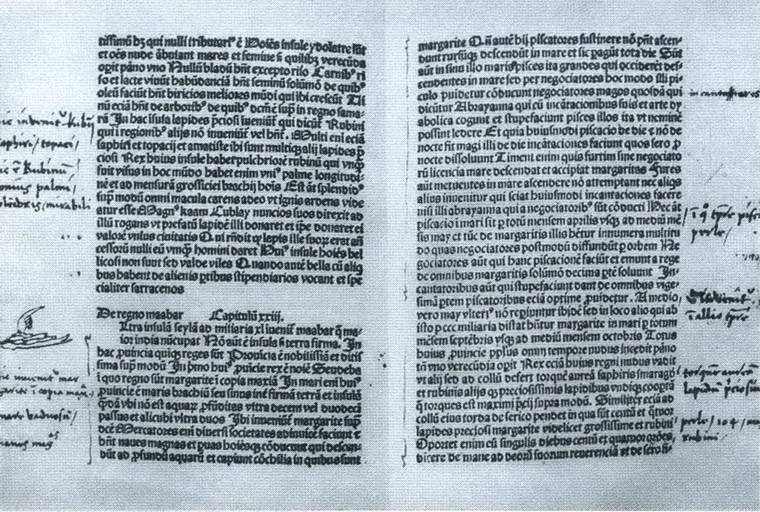 tissimũ dz qui nulli tributari⁹ ē Hoīes insule ydolatre sūt
et oēs nude ābulant mares et femine sꝫ quilibꝫ verecūda
opit pāno vno Nullū bladū hn̄t excepto riso Carnibꝰ ri
so et lacte viuūt habūdanciā hn̄t seminū solūmō de quibꝰ
oleū faciūt hn̄t biricios meliores mūdi qui ibi crescūt Ui
nū eciā hn̄t de arboribꝰ de quibꝰ dcm̄ ē supͣ in regno sama
rā In hac īsula lapides p̄ciosi īueniūt qui dicūt Rubini
qui ī regionibꝰ alijs nō īueniūt vel hn̄t. Multi eni eciā
saphiri et topacij et amatiste ibi sunt multiqꝫ alij lapides p̄
ciosi Rex huius insule habet pulchriorē rubinū qui vnqͣꝫ
fuit visus in hoc mūdo habet enim vniꝰ palme longitudi
nē et ad mensurā grossiciei brachij hoīs Est āt splendidꝰ
supͣ modū omni macula carens adeo vt ignis ardens vide
atur esse Magnꝰ kaam Cublay nuncios suos direxit ad
illū rogans vt prefatū lapidē illi donaret et ip̄e donaret ei
valorē vnius ciuitatis Qui rn̄dit qꝫ lepis ille suoꝝ erat an̄
cessoꝝ nulli eū vnqͣꝫ homini daret Huiꝰ insule hoīes bel
licosi non sunt sed valde viles Quando autē bella cū aliqͥ
bus habent de alienis ꝑtibus stipendiarios vocant et spe
cialiter sarracenos
De regno maabar Capitulū xxiij.
Ultra insulā seylā ad miliaria xl īuenit̄ maabar q̄ ma
ior india nūcupat̄ Nō aūt ē insula sꝫ terra firma. In
hac ꝓuincia quiqꝫ reges sūt Prouīcia ē nobilissiā et ditis
sima supͣ modū In pͥmo huiꝰ ꝓuīcie rex ē noīe Seudeba
ī quo regno sūt margarite ī copia maxiā In mari eni huiꝰ
ꝓuincie ē maris brachiū seu sinus īnē firmā terrā et insulā
qͣndā vbi nō est aquaꝝ ꝓfūditas vltra decem vel duodecī
passus et alicubi vltra duos Ibi īueniūt̄ margarite supͣ
dcē Mercatores eni diuersi societates adinuicē faciunt et
hn̄t naues magnas et ꝑuas hoīesqꝫ cōducunt qui descen
dūt ad ꝓfundū aquarū et capiunt cōchilia in quibus sunt
margarite Qn̄ autē hij piscatores sustinere nō pn̄t ascen
dunt rursūqꝫ descendūt in mare et sic ꝑagūt tota die Sūt
aūt in sinu illo maris pisces ita grandes qui occiderēt des
cendentes in mare sed per negociatores hoc modo illi pi
culo ꝓuidetur cōducunt negociatores magos quosdā qui
dicūtur Abrayanna qui cū incātacionibus suis et arte dy
abolica cogunt et stupefaciunt pisces illos ita vt neminē
possint ledere Et quia huiusmodi piscacio de die ⁊ nō de
nocte fit magi illi de die incātaciones faciunt quos sero ꝓ
nocte dissoluunt Timent enim quis furtim sine negociato
rū licencia mare descendat et accipiat margaritas Fures
aūt metuentes in mare ascendere nō attemptant nec aliqs
alius inuenitur qui sciat huiusmodi incantaciones facere
nisi illi abrayanna qui a negociatoribꝰ sūt cōducti Hec āt
piscacio ī mari fit ꝑ totū mensem aprilis vsqꝫ ad mediū mē
sis may et tūc de margaritis illis hētur innumera multitu
do quas negociatores postmodū diffundūt ꝑ orbem Ne
gociatores aūt qui hanc piscacionē faciūt et emunt a rege
de omnibus margaritis solūmō decima ꝑtē soluunt In
cantatoribus aūt qui stupefaciunt dant de omnibus vige
simā ꝑtem piscatoribus eciā optime ꝓuidetur. A medio
vero may vlteriꝰ nō repiuntur ibidē sed in loco alio qui ab
isto ꝑ ccc miliaria distat hn̄tur margarite in mari ꝑ totum
mēsem septēbris vsqꝫ ad mediū mensem octobris Totus
huius ꝓuincie ppl̄us omni tempore nudus incedit pāno
tn̄ vno verecūdia opit Rex eciā huius regni nudus vadit
vt alij sed ad collū defert torquē aureū saphiris smaragd
et rubinis alijs qꝫ preciosissimis lapidibus vndiqꝫ coopta
q̄ torques est maximi p̄cij supra modū. Similiter eciā ad
collū eius corda de serico pendet in qua sūt centū et qͣtuor
lapides preciosi margarite videlicet grossissime et rubini
Oportet enim eū singulis diebus centū et quatuor oroēs
dicere de mane ad deorū suorum reuerenciā et de sero sīl